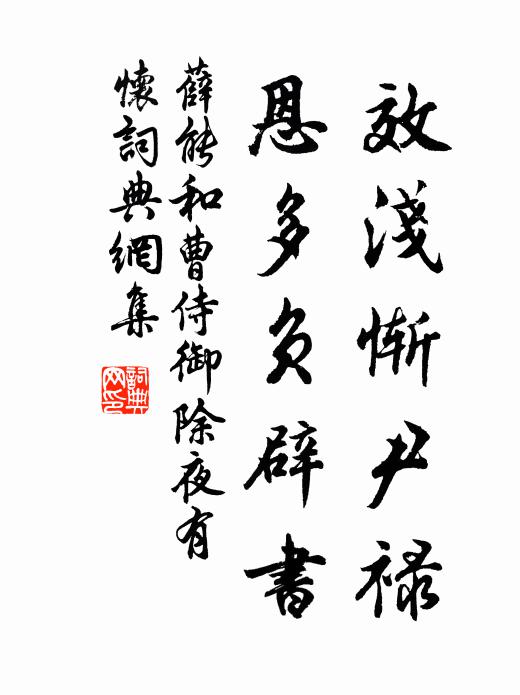 效淺慚尹祿
恩多負辟書
薛能和曹侍御除夜有
懷詞典網集
詞典
网印